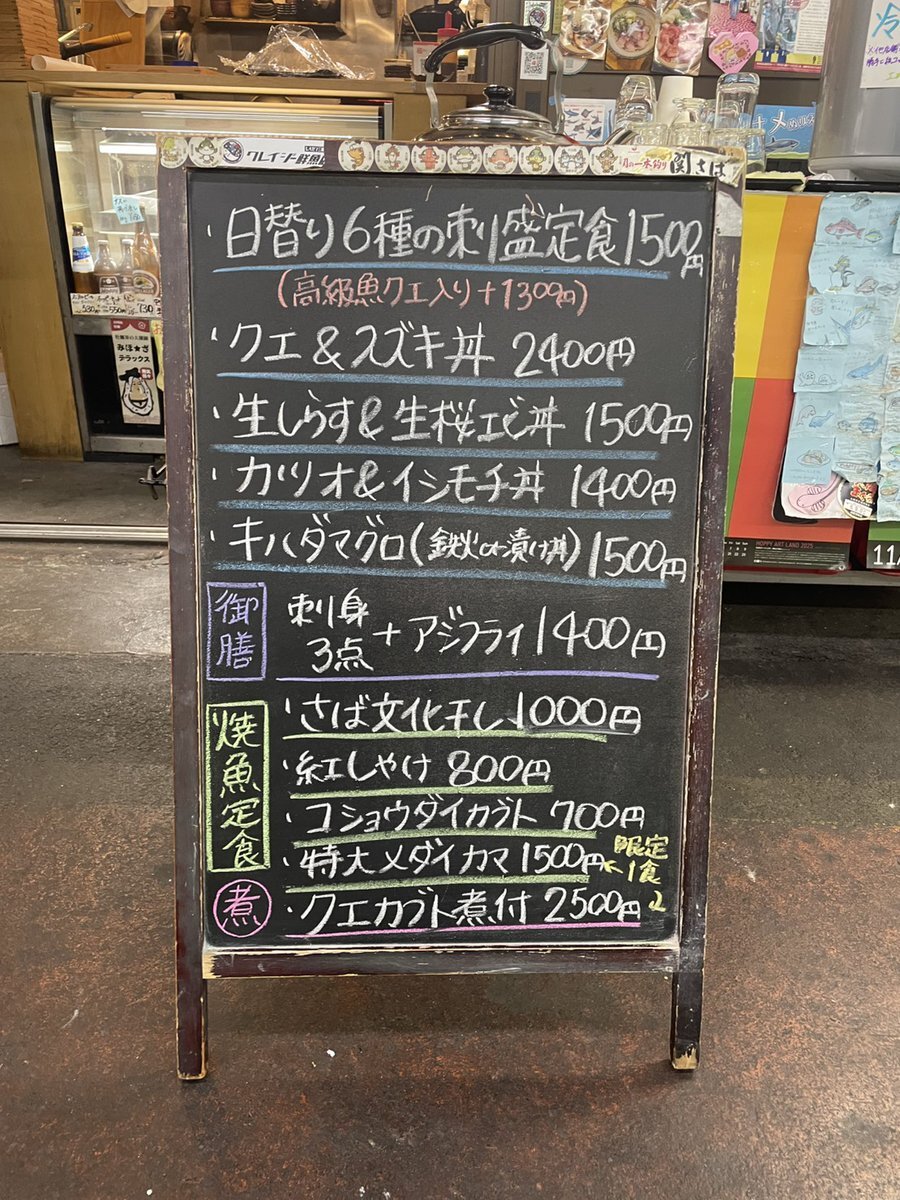 クレイジー鮮魚
関さば
・日替り6種の刺し盛定食1500円
(高級魚クエ入り+1300円)
・クエ&スズキ丼 2400円
・生しらす&生桜エビ丼 1500円
・カツオ&イシモチ丼 1400円
・キハダマグロ(鉄火or漬け丼)1500円
御膳
刺身3点+アジフライ1400円
焼魚定食
・さば文化干し 1000円
・紅しゃけ 800円
・コショウダイカブト 700円
・特大メダイカマ 1500円
限定
←1食
煮
・クエカブト煮付 2500円
みほ★さ
テラックス
530円
550円
730
HOPPY ART LAND 2025
11/
冷